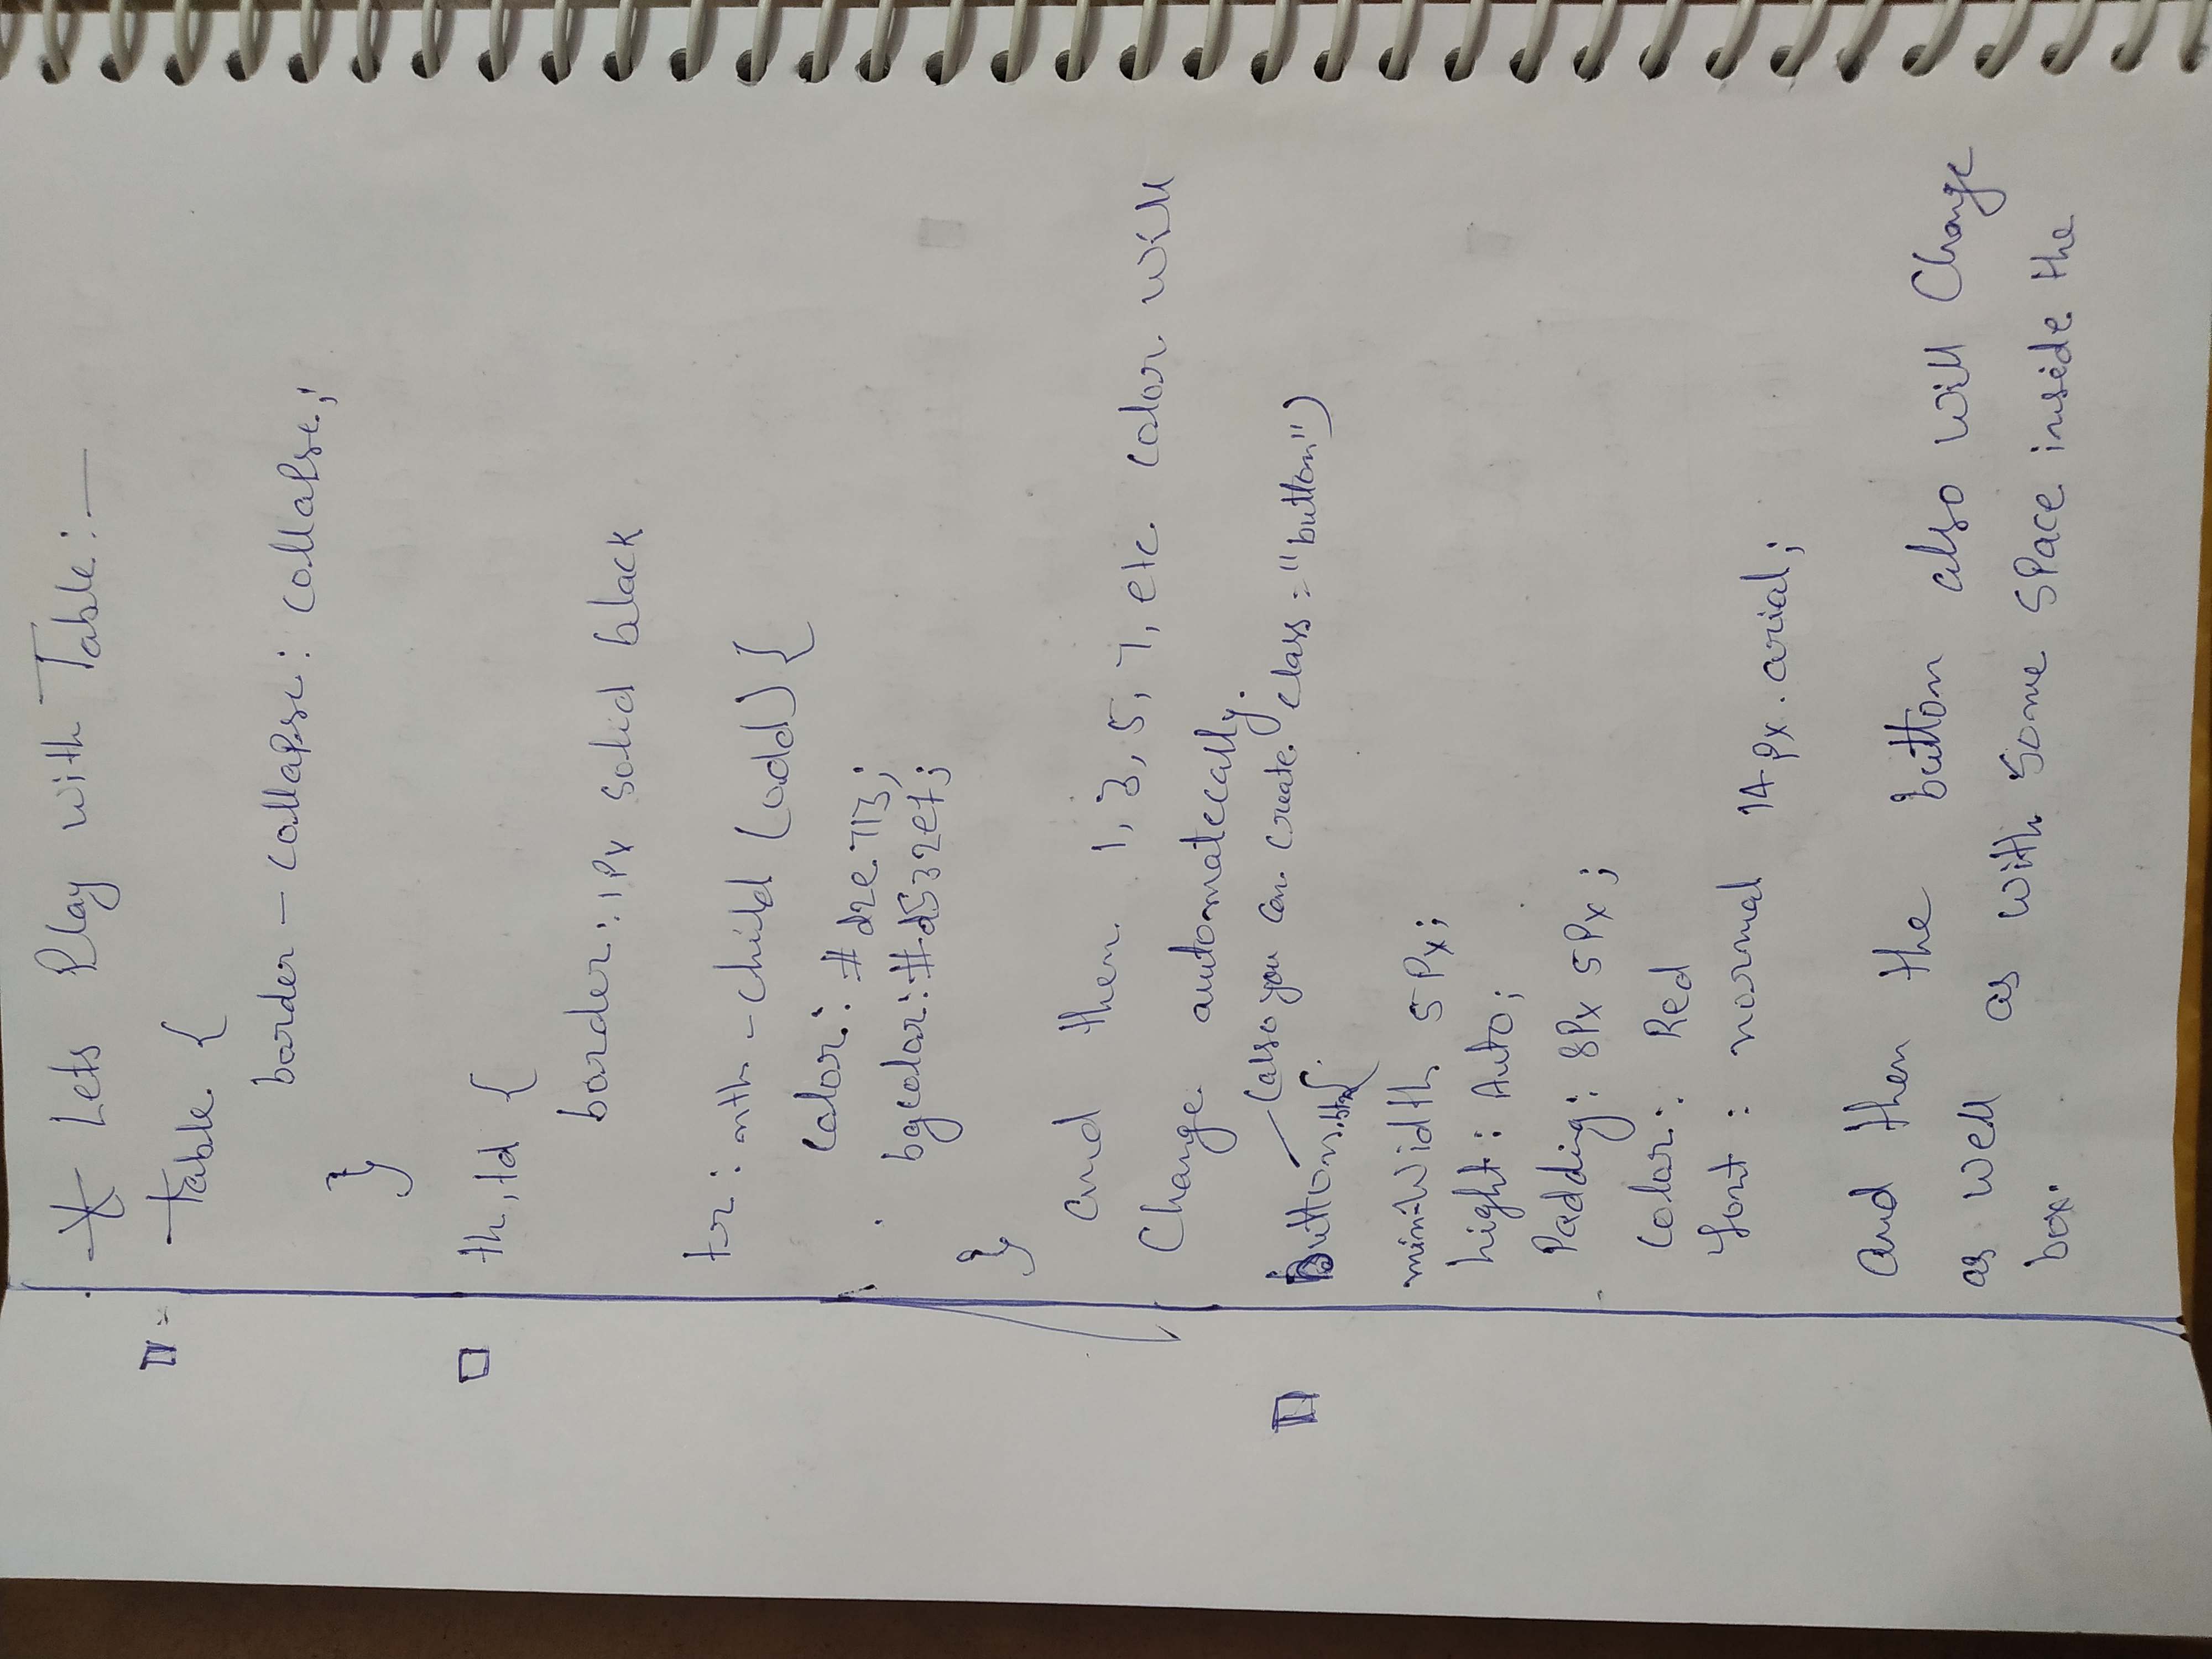 * Lets Play with Table :—
Table {
border - collapse : collapse;
}
th, td {
border : 1Px solid black
tr : nth - child (odd) {
color : # d2e713;
bgcolor : #
}
and then 1, 3, 5, 7, etc color will
Change automatecally.
(also you can create class = "button")
button
min-width 5Px;
hight : Auto;
Padding : 8Px 5Px;
Color : Red
font : normal 14Px arial;
and then the button also will Change
as well as with Some Space inside the
box.